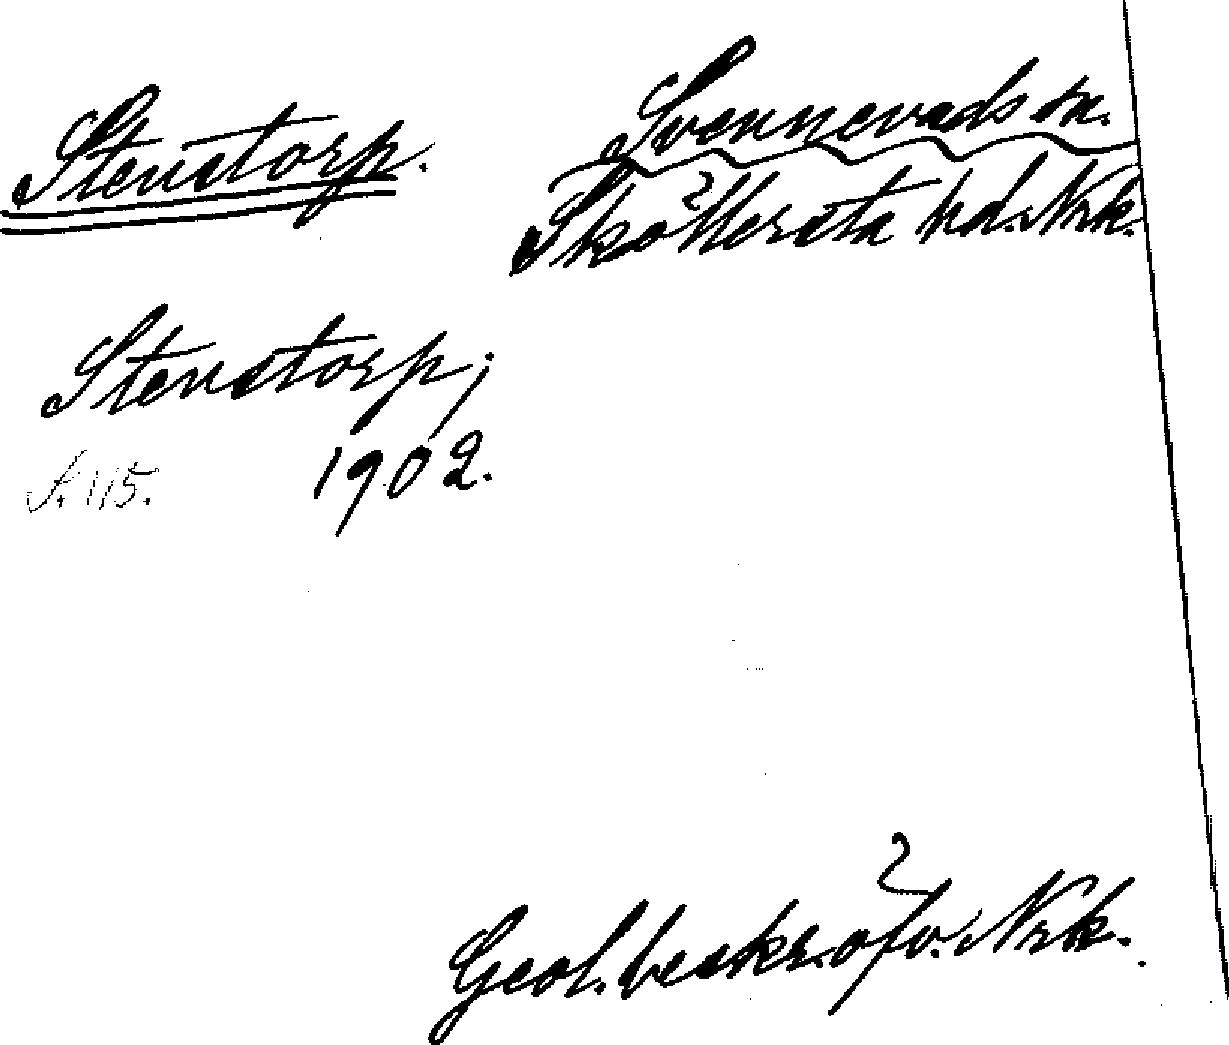 Stenstorp.
Svennevads sn.
Sköllersta hd. Nrk.
Stenstorp;
1902.
S. 115.
Geol. beskr. öfv. Nrk.